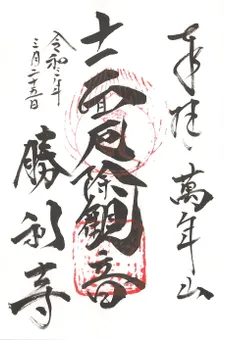 奉拝
萬年山
十一面厄除観音
令和二年
三月二十五日
勝利寺